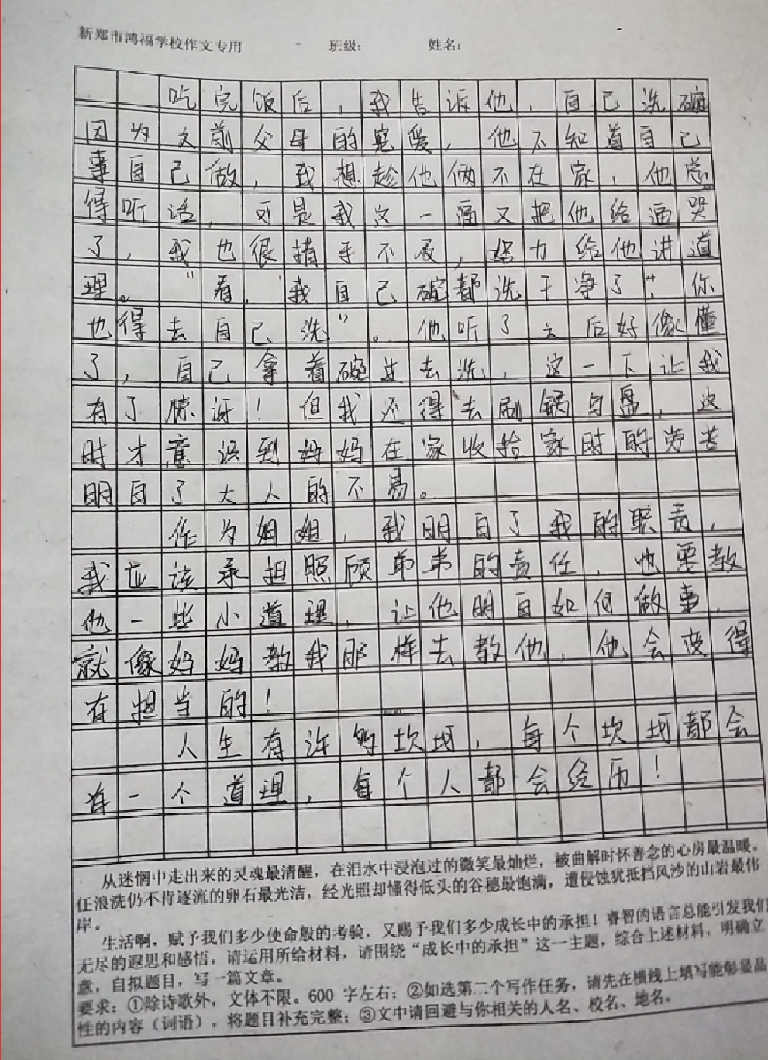 新郑市鸿福学校作文专用 班级: 姓名:
吃完饭后，我告诉他，自己洗碗
因为之前父母的宠爱，他不知道自己
事自己做，我想趁他俩不在家，他总
得听话，可是我这一逼又把他给逼哭
了，我也很措手不及，努力给他讲道
理。“看，我自己碗都洗干净了”，你
也得去自己洗”。他听了之后好像懂
了，自己拿着碗过去洗，这一下让我
有了惊讶！但我还得去刷锅与盘，这
时才意识到妈妈在家收拾家时的劳苦
明白了大人的不易。
作为姐姐，我明白了我的职责，
我应该承担照顾弟弟的责任，也要教
他一些小道理，让他明白如何做事，
就像妈妈教我那样去教他，他会变得
有担当的！
人生有许多坎坷，每个坎坷都会
有一个道理，每个人都会经历！
从迷惘中走出来的灵魂最清醒，在泪水中浸泡过的微笑最灿烂，被曲解时怀善念的心房最温暖。
任浪洗仍不肯逐流的卵石最光洁，经光照却懂得低头的谷穗最饱满，遭侵蚀犹抵挡风沙的山岩最伟
岸。
生活啊，赋予我们多少使命般的考验，又赐予我们多少成长中的承担！睿智的语言总能引发我们
无尽的遐思和感悟，请运用所给材料，请围绕“成长中的承担”这一主题，综合上述材料，明确立
意，自拟题目，写一篇文章。
要求：①除诗歌外，文体不限。600 字左右；②如选第二个写作任务，请先在横线上填写能彰显品
性的内容（词语），将题目补充完整；③文中请回避与你相关的人名、校名、地名。